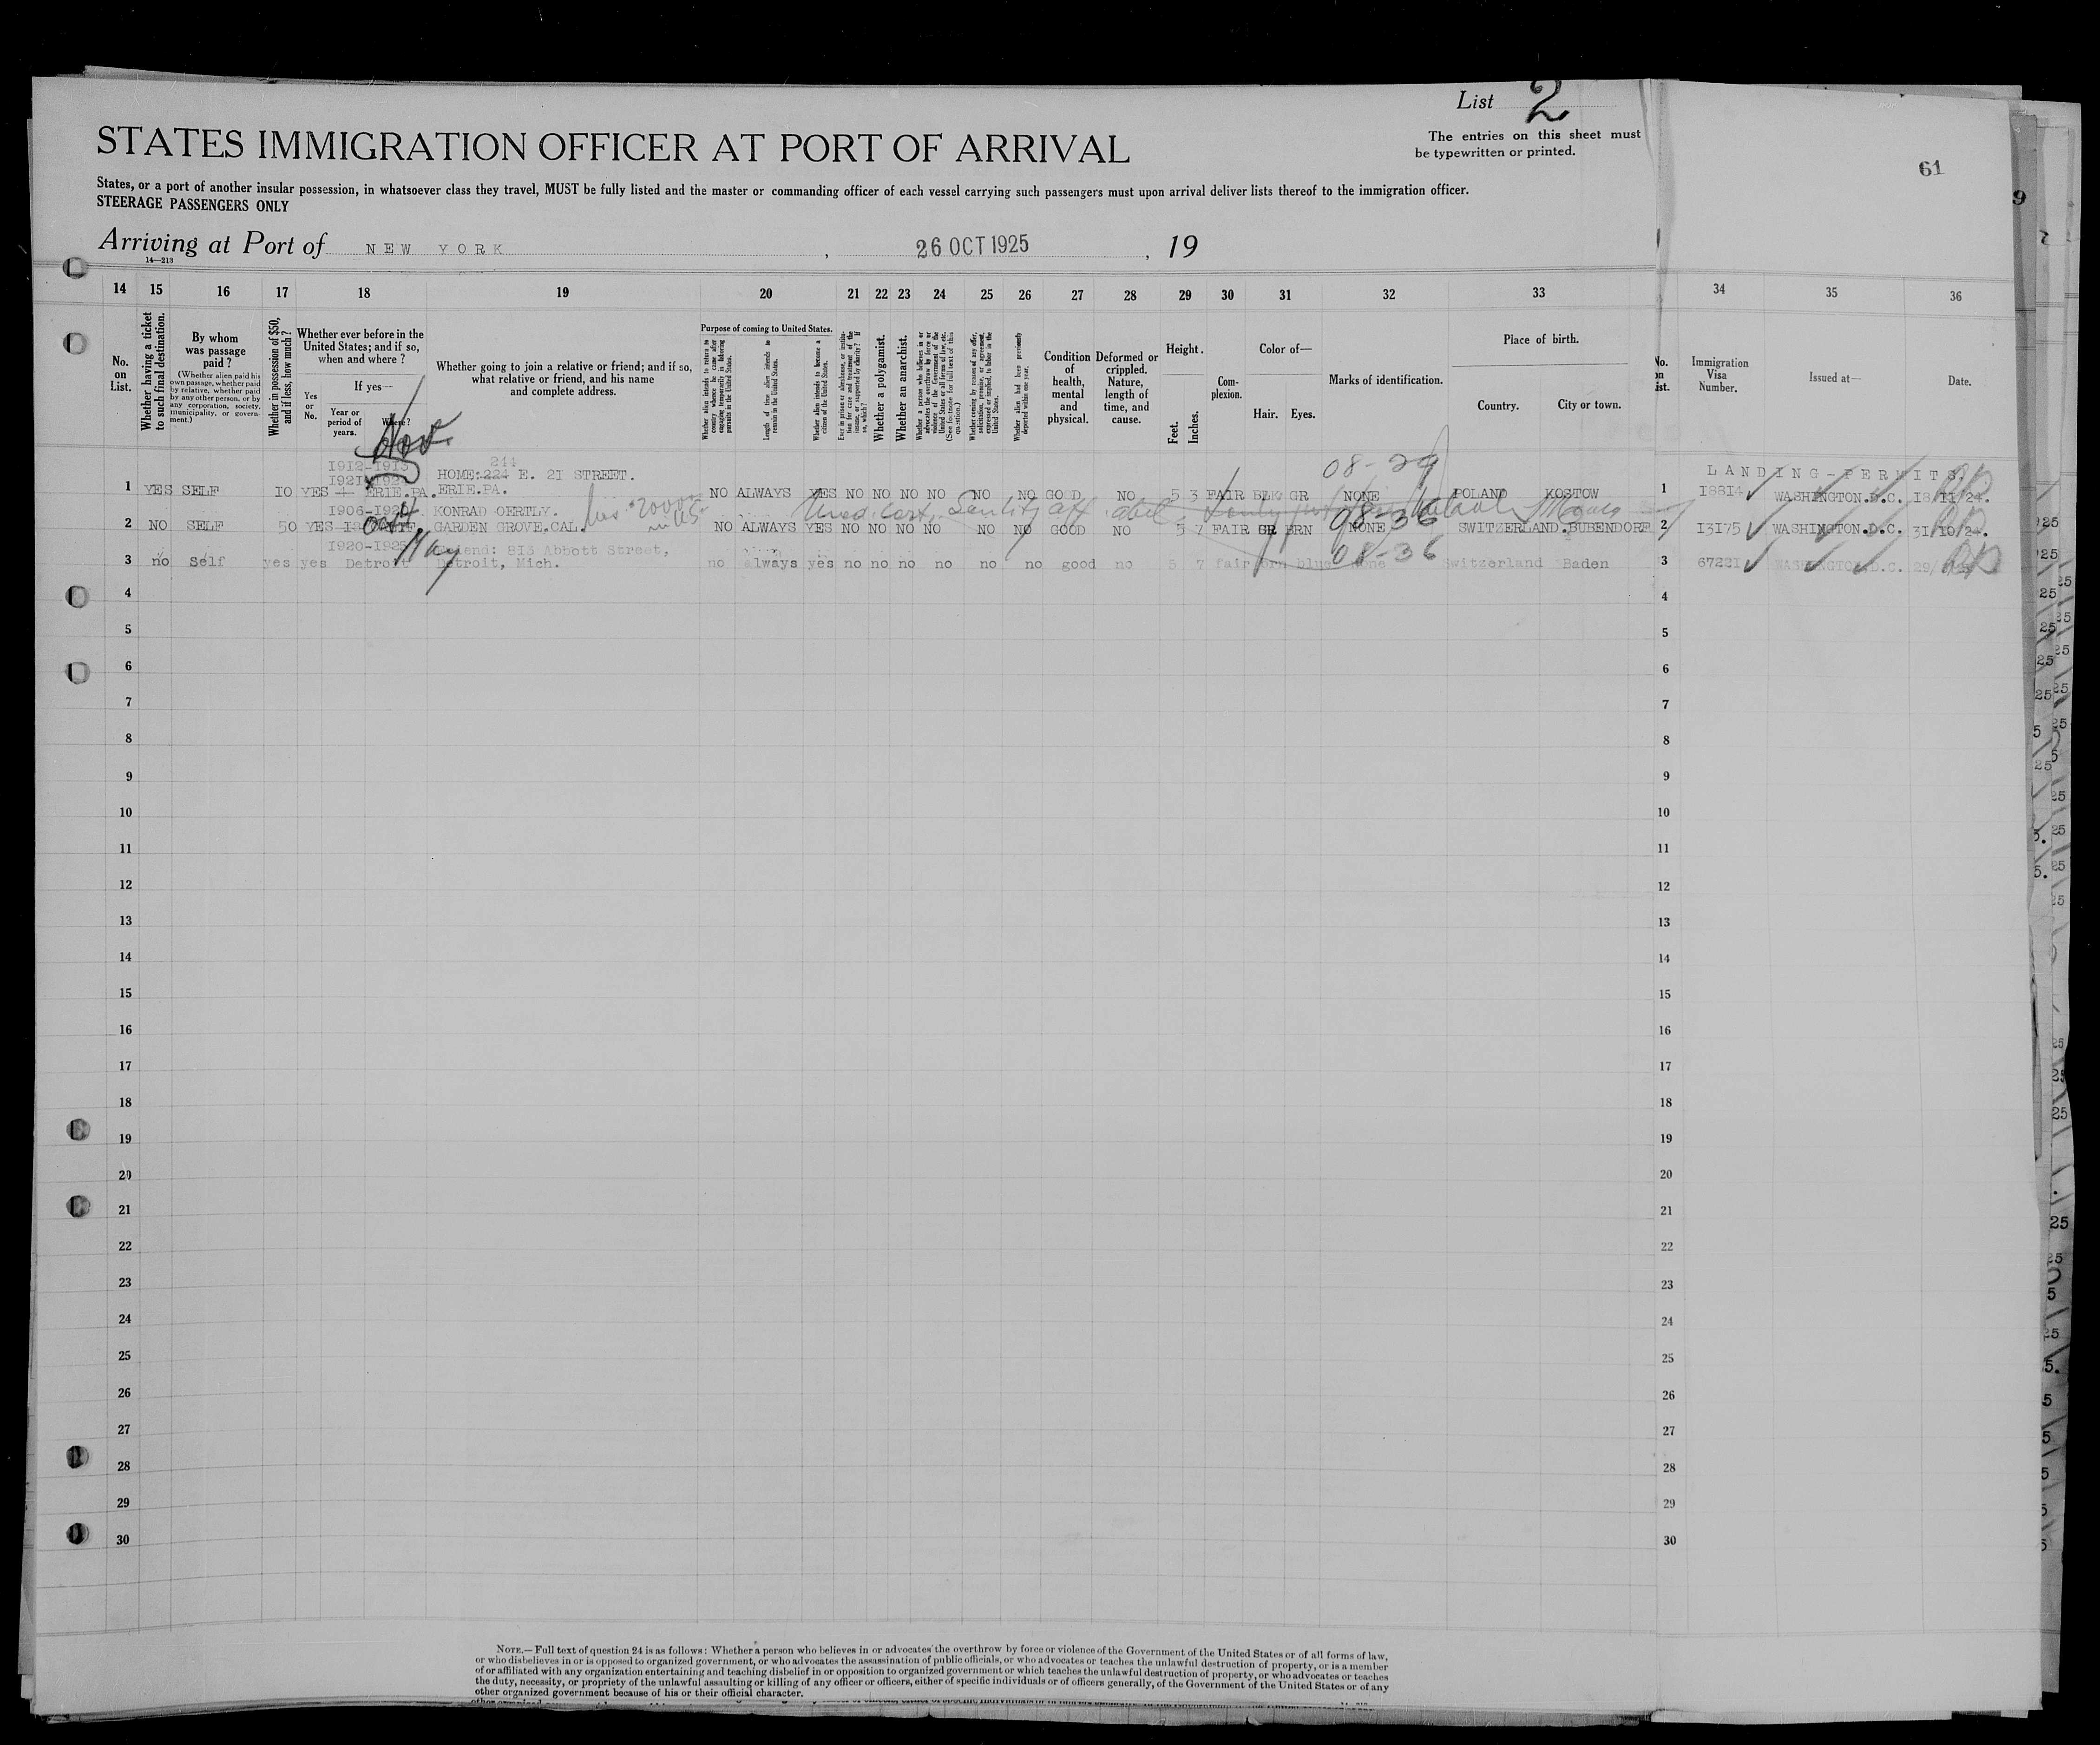 List 2
The entries on this sheet must
be typewritten or printed.
61
STATES IMMIGRATION OFFICER AT PORT OF ARRIVAL
States, or a port of another insular possession, in whatsoever class they travel, MUST be fully listed and the master or commanding officer of each vessel carrying such passengers must upon arrival deliver lists thereof to the immigration officer.
STEERAGE PASSENGERS ONLY
Arriving at Port of NEW YORK, 26 OCT 1925, 19
14—213
14 15 16 17 18 19 20 21 22 23 24 25 26 27 28 29 30 31 32 33 34 35 36
No. on List.
Whether having a ticket to such final destination.
By whom was passage paid?
(Whether alien paid his own passage, whether paid by relative, whether paid by any other person, or by any corporation, society, municipality, or government.)
Whether in possession of $50, and if less, how much?
Whether ever before in the United States; and if so, when and where?
Yes or No.
If yes—
Year or period of years.
Where?
Whether going to join a relative or friend; and if so, what relative or friend, and his name and complete address.
Purpose of coming to United States.
Whether alien intends to return to country whence he came after engaging temporarily in laboring pursuits in the United States.
Length of time alien intends to remain in the United States.
Whether alien intends to become a citizen of the United States.
Ever in prison or almshouse, or institution for care and treatment of the insane, or supported by charity? If so, which?
Whether a polygamist.
Whether an anarchist.
Whether a person who believes in or advocates the overthrow by force or violence of the Government of the United States or all forms of law, etc. (See footnote for full text of this question.)
Whether coming by reason of any offer, solicitation, promise, or agreement, expressed or implied, to labor in the United States.
Whether alien had been previously deported within one year.
Condition of health, mental and physical.
Deformed or crippled. Nature, length of time, and cause.
Height.
Feet. Inches.
Complexion.
Color of—
Hair. Eyes.
Marks of identification.
Place of birth.
Country. City or town.
No. on List.
Immigration Visa Number.
Issued at—
Date.
Nov
1912-1913 244 08-29 LANDING-PERMITS
HOME:224 E. 21 STREET.
1 YES SELF 10 YES ERIE.PA. ERIE.PA. NO ALWAYS YES NO NO NO NO NO NO GOOD NO 5 3 FAIR BLK GR NONE POLAND KOSTOW 1 18814 WASHINGTON.D.C. 18/11/24.
KONRAD OERTLY. has
2 NO SELF 50 YES Oct GARDEN GROVE.CAL. NO ALWAYS YES NO NO NO NO NO NO GOOD NO 5 7 FAIR GR BRN NONE 08-36 SWITZERLAND.BUBENDORF 2 13175 WASHINGTON.D.C. 31/10/24.
1920-1925 May Friend: 813 Abbott Street, 08-36
3 no Self yes yes Detroit Detroit, Mich. no always yes no no no no no no good no 5 7 fair brn blue none Switzerland Baden 3 67221 WASHINGTON D.C.
4 4
5 5
6 6
7 7
8 8
9 9
10 10
11 11
12 12
13 13
14 14
15 15
16 16
17 17
18 18
19 19
20 20
21 21
22 22
23 23
24 24
25 25
26 26
27 27
28 28
29 29
30 30
NOTE.—Full text of question 24 is as follows: Whether a person who believes in or advocates the overthrow by force or violence of the Government of the United States or of all forms of law,
or who disbelieves in or is opposed to organized government, or who advocates the assassination of public officials, or who advocates or teaches the unlawful destruction of property, or is a member
of or affiliated with any organization entertaining and teaching disbelief in or opposition to organized government or which teaches the unlawful destruction of property, or who advocates or teaches
the duty, necessity, or propriety of the unlawful assaulting or killing of any officer or officers, either of specific individuals or of officers generally, of the Government of the United States or of any
other organized government because of his or their official character.